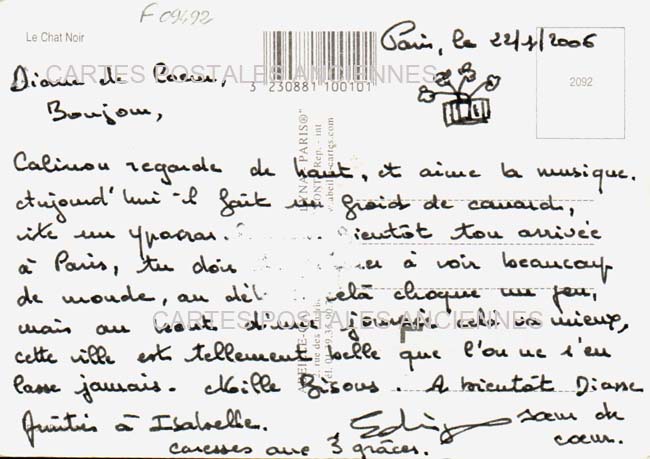 F 09492
Le Chat Noir
Paris, le 22/1/2006
2092
3 230881 100101
CARTES POSTALES ANCIENNES
Diane de Coeur,
Bonjour,
Calinou regarde de haut, et aime la musique.
Aujourd'hui il fait un froid de canard,
vite un Ypocras. Bientôt ton arrivée
à Paris, tu dois à voir beaucoup
de monde, au dé celà chaque un peu,
mais au bout d'une journée cela va mieux,
CARTES POSTALES ANCIENNES
cette ville est tellement belle que l'on ne s'en
lasse jamais. Mille Bisous. A bientôt Diane
Amitiés à Isabelle. soeur de
caresses aux 3 grâces. coeur.